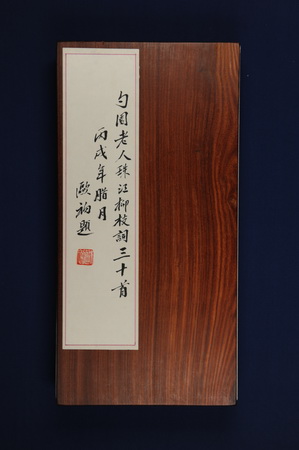 勺园老人珠江柳枝詞三十首
丙戌年腊月
歐初題